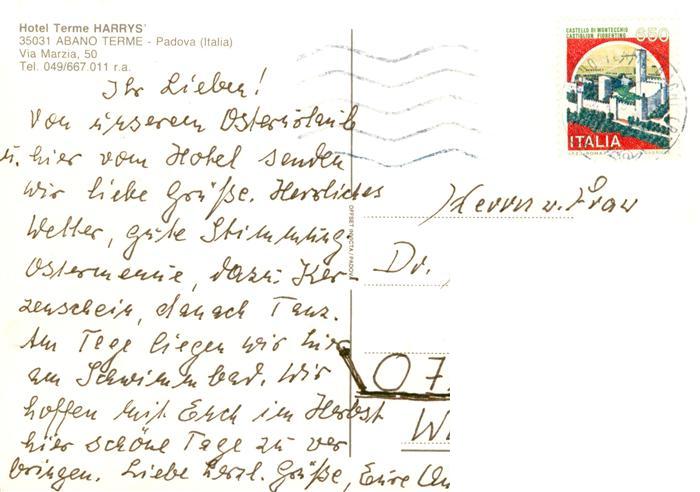 Hotel Terme HARRYS'
35031 ABANO TERME - Padova (Italia)
Via Marzia, 50
Tel. 049/667.011 r.a.
Ihr Lieben!
Von unserem Osterurlaub
u. hier vom Hotel senden
wir liebe Grüße. Herrliches
Wetter, gute Stimmung
Ostermenue, dazu Ker-
zenschein, danach Tanz.
Am Tage liegen wir hier
am Schwimmbad. Wir
hoffen mit Euch im Herbst
hier schöne Tage zu ver
bringen. Liebe herzl. Grüße, Eure
OFFSET INVICTA/PADOVA
CASTELLO DI MONTECCHIO
CASTIGLION FIORENTINO
650
ITALIA
Herrn u. Frau
Dr.
07
W